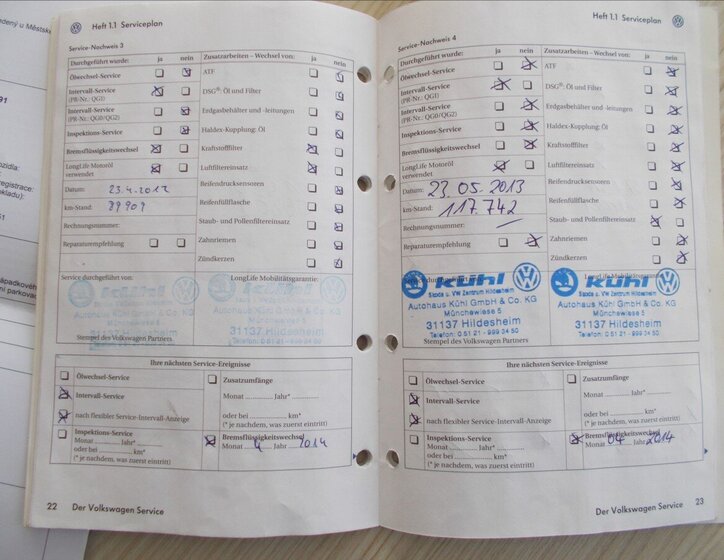 edený u Městské
91
ozidla:
registrace:
okladu):
51
ápadkového
ní parkovac
Heft 1.1 Serviceplan
Service-Nachweis 3
Durchgeführt wurde: ja nein
Ölwechsel-Service
Intervall-Service
(PR-Nr.: QG1)
Intervall-Service
(PR-Nr.: QG0/QG2)
Inspektions-Service
Bremsflüssigkeitswechsel
LongLife Motoröl
verwendet
Datum: 23.4.2012
km-Stand: 89909
Rechnungsnummer:
Reparaturempfehlung
Zusatzarbeiten – Wechsel von: ja nein
ATF
DSG®: Öl und Filter
Erdgasbehälter und -leitungen
Haldex-Kupplung: Öl
Kraftstofffilter
Luftfiltereinsatz
Reifendrucksensoren
Reifenfüllflasche
Staub- und Pollenfiltereinsatz
Zahnriemen
Zündkerzen
Service durchgeführt von: LongLife Mobilitätsgarantie:
KÜHL
Autohaus Kühl GmbH & Co. KG
Münchewiese 5
31137 Hildesheim
Stempel des Volkswagen Partners
Ihre nächsten Service-Ereignisse
Ölwechsel-Service
Intervall-Service
nach flexibler Service-Intervall-Anzeige
Inspektions-Service
Monat Jahr*
oder bei km*
(* je nachdem, was zuerst eintritt)
Zusatzumfänge
Monat Jahr*
oder bei km*
(* je nachdem, was zuerst eintritt)
Bremsflüssigkeitswechsel
Monat 4 Jahr 2014
22 Der Volkswagen Service
Heft 1.1 Serviceplan
Service-Nachweis 4
Durchgeführt wurde: ja nein
Ölwechsel-Service
Intervall-Service
(PR-Nr.: QG1)
Intervall-Service
(PR-Nr.: QG0/QG2)
Inspektions-Service
Bremsflüssigkeitswechsel
LongLife Motoröl
verwendet
Datum: 23.05.2013
km-Stand: 117.742
Rechnungsnummer:
Reparaturempfehlung
Zusatzarbeiten – Wechsel von: ja nein
ATF
DSG®: Öl und Filter
Erdgasbehälter und -leitungen
Haldex-Kupplung: Öl
Kraftstofffilter
Luftfiltereinsatz
Reifendrucksensoren
Reifenfüllflasche
Staub- und Pollenfiltereinsatz
Zahnriemen
Zündkerzen
LongLife Mobilitätsgarantie:
KÜHL
Skoda u. VW Zentrum Hildesheim
Autohaus Kühl GmbH & Co. KG
Münchewiese 5
31137 Hildesheim
Telefon: 0 51 21 - 999 34 50
KÜHL
Skoda u. VW Zentrum Hildesheim
Autohaus Kühl GmbH & Co. KG
Münchewiese 5
31137 Hildesheim
Telefon: 0 51 21 - 999 34 50
Stempel des Volkswagen Partners
Ihre nächsten Service-Ereignisse
Ölwechsel-Service
Intervall-Service
nach flexibler Service-Intervall-Anzeige
Inspektions-Service
Monat Jahr*
oder bei km*
(* je nachdem, was zuerst eintritt)
Zusatzumfänge
Monat Jahr*
oder bei km*
(* je nachdem, was zuerst eintritt)
Bremsflüssigkeitswechsel
Monat 04 Jahr 2014
Der Volkswagen Service 23